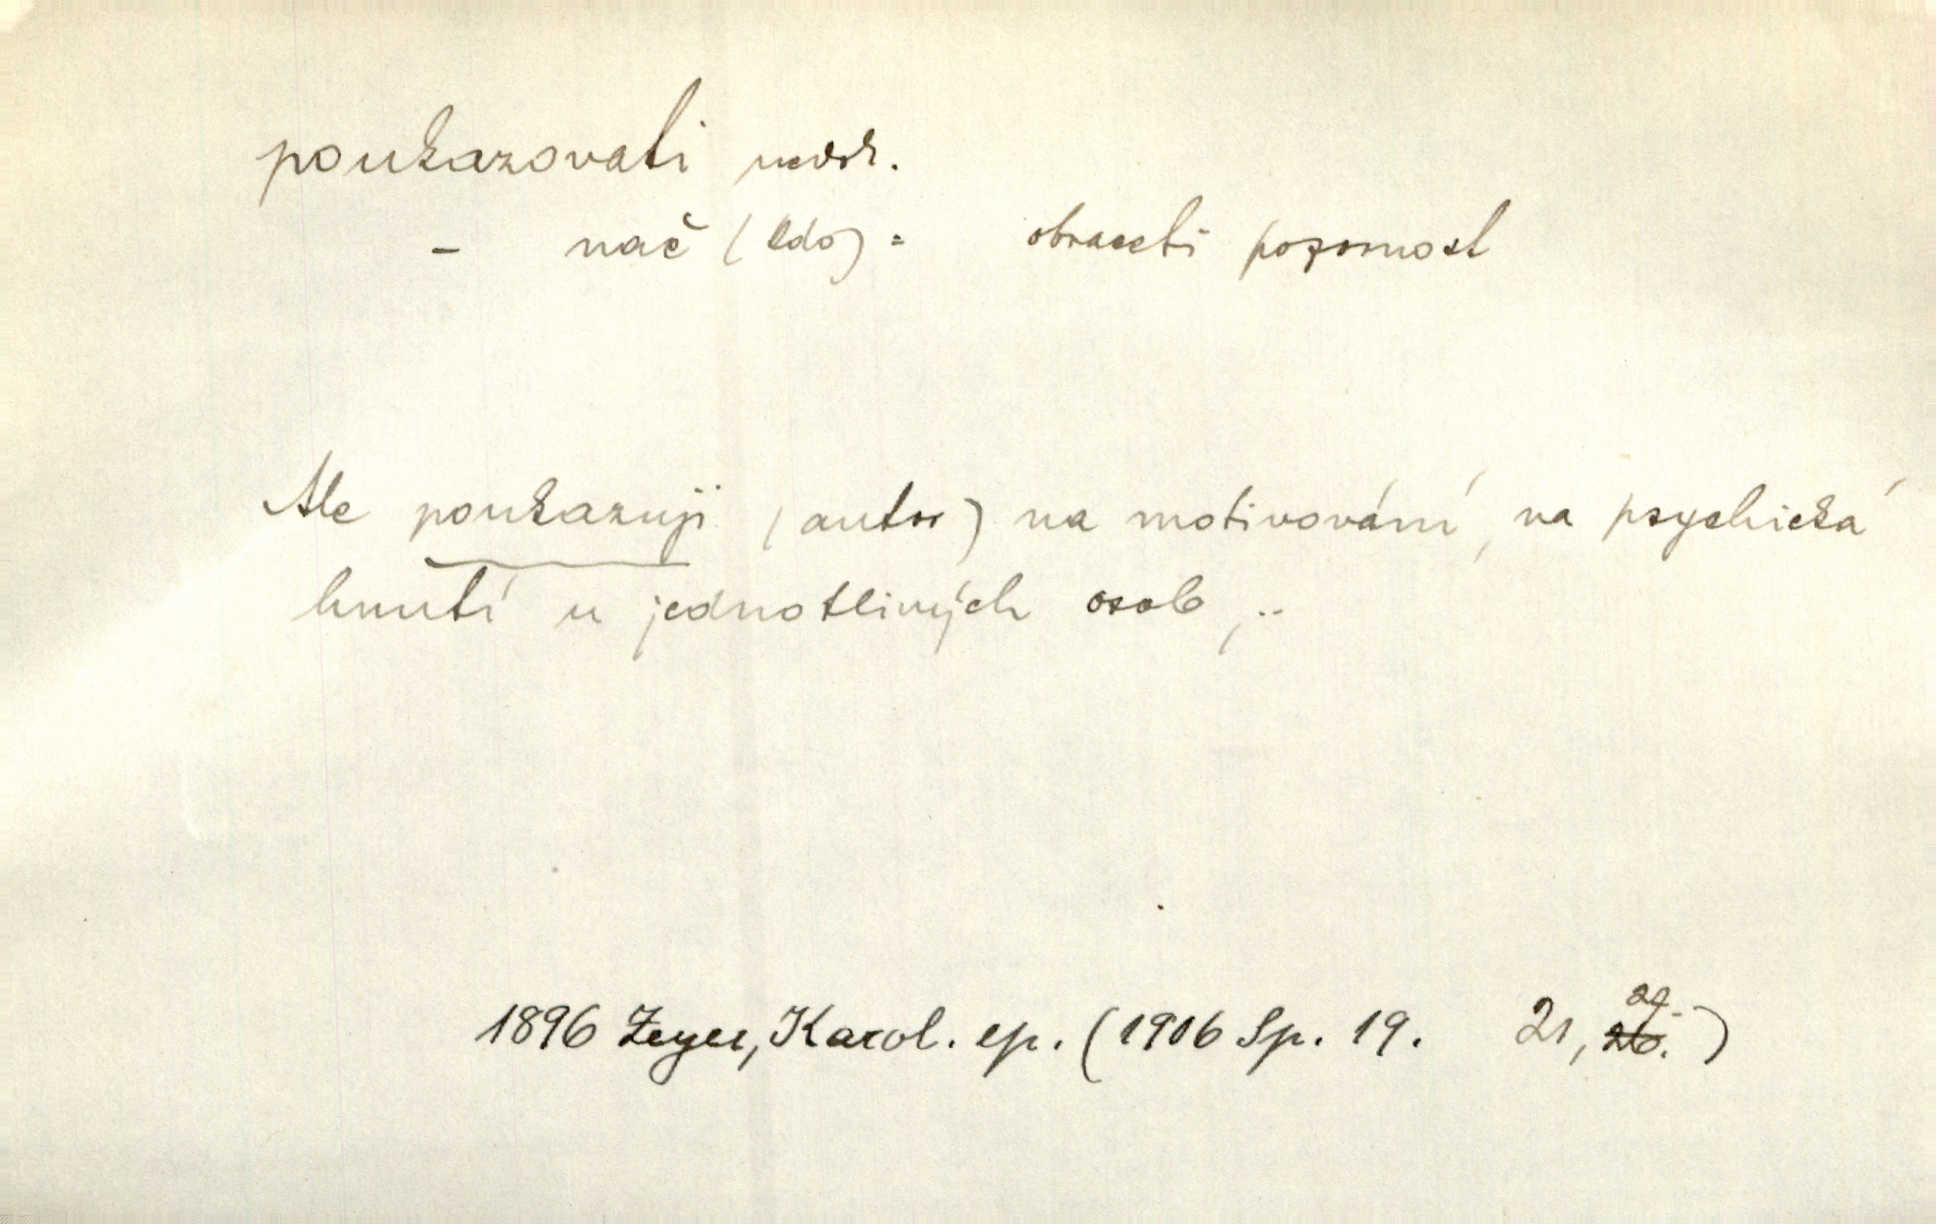 poukazovati nedok.
– nač (kdo) = obraceti pozornost
Ale poukazuji (autor) na motivování, na psychická
hnutí u jednotlivých osob, ..
1896 Zeyer, Karol. ep. (1906 Sp. 19. 21, )